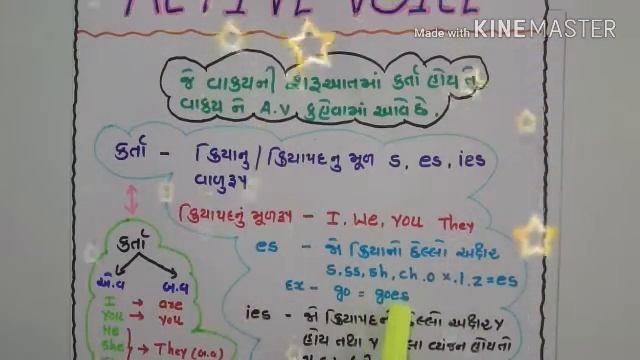 ACTIVE VOICE
Made with KINEMASTER
જે વાક્યની શરૂઆતમાં કર્તા હોય તે
વાક્ય ને A.V. કહેવામાં આવે છે.
કર્તા - ક્રિયાનુ / ક્રિયાપદનુ મૂળ s, es, ies
વાળુરૂપ
ક્રિયાપદનું મૂળરૂપ - I, We, You They
es - જો ક્રિયાનો છેલ્લો અક્ષર
s, ss, sh, ch, o x, z = es
Ex - go = goes
ies - જો ક્રિયાપદનો છેલ્લો અક્ષર y
હોય તથા y વ્યંજન હોયતો
કર્તા
એ.વ બ.વ
I → are
You → you
He
She → They (બ.વ)